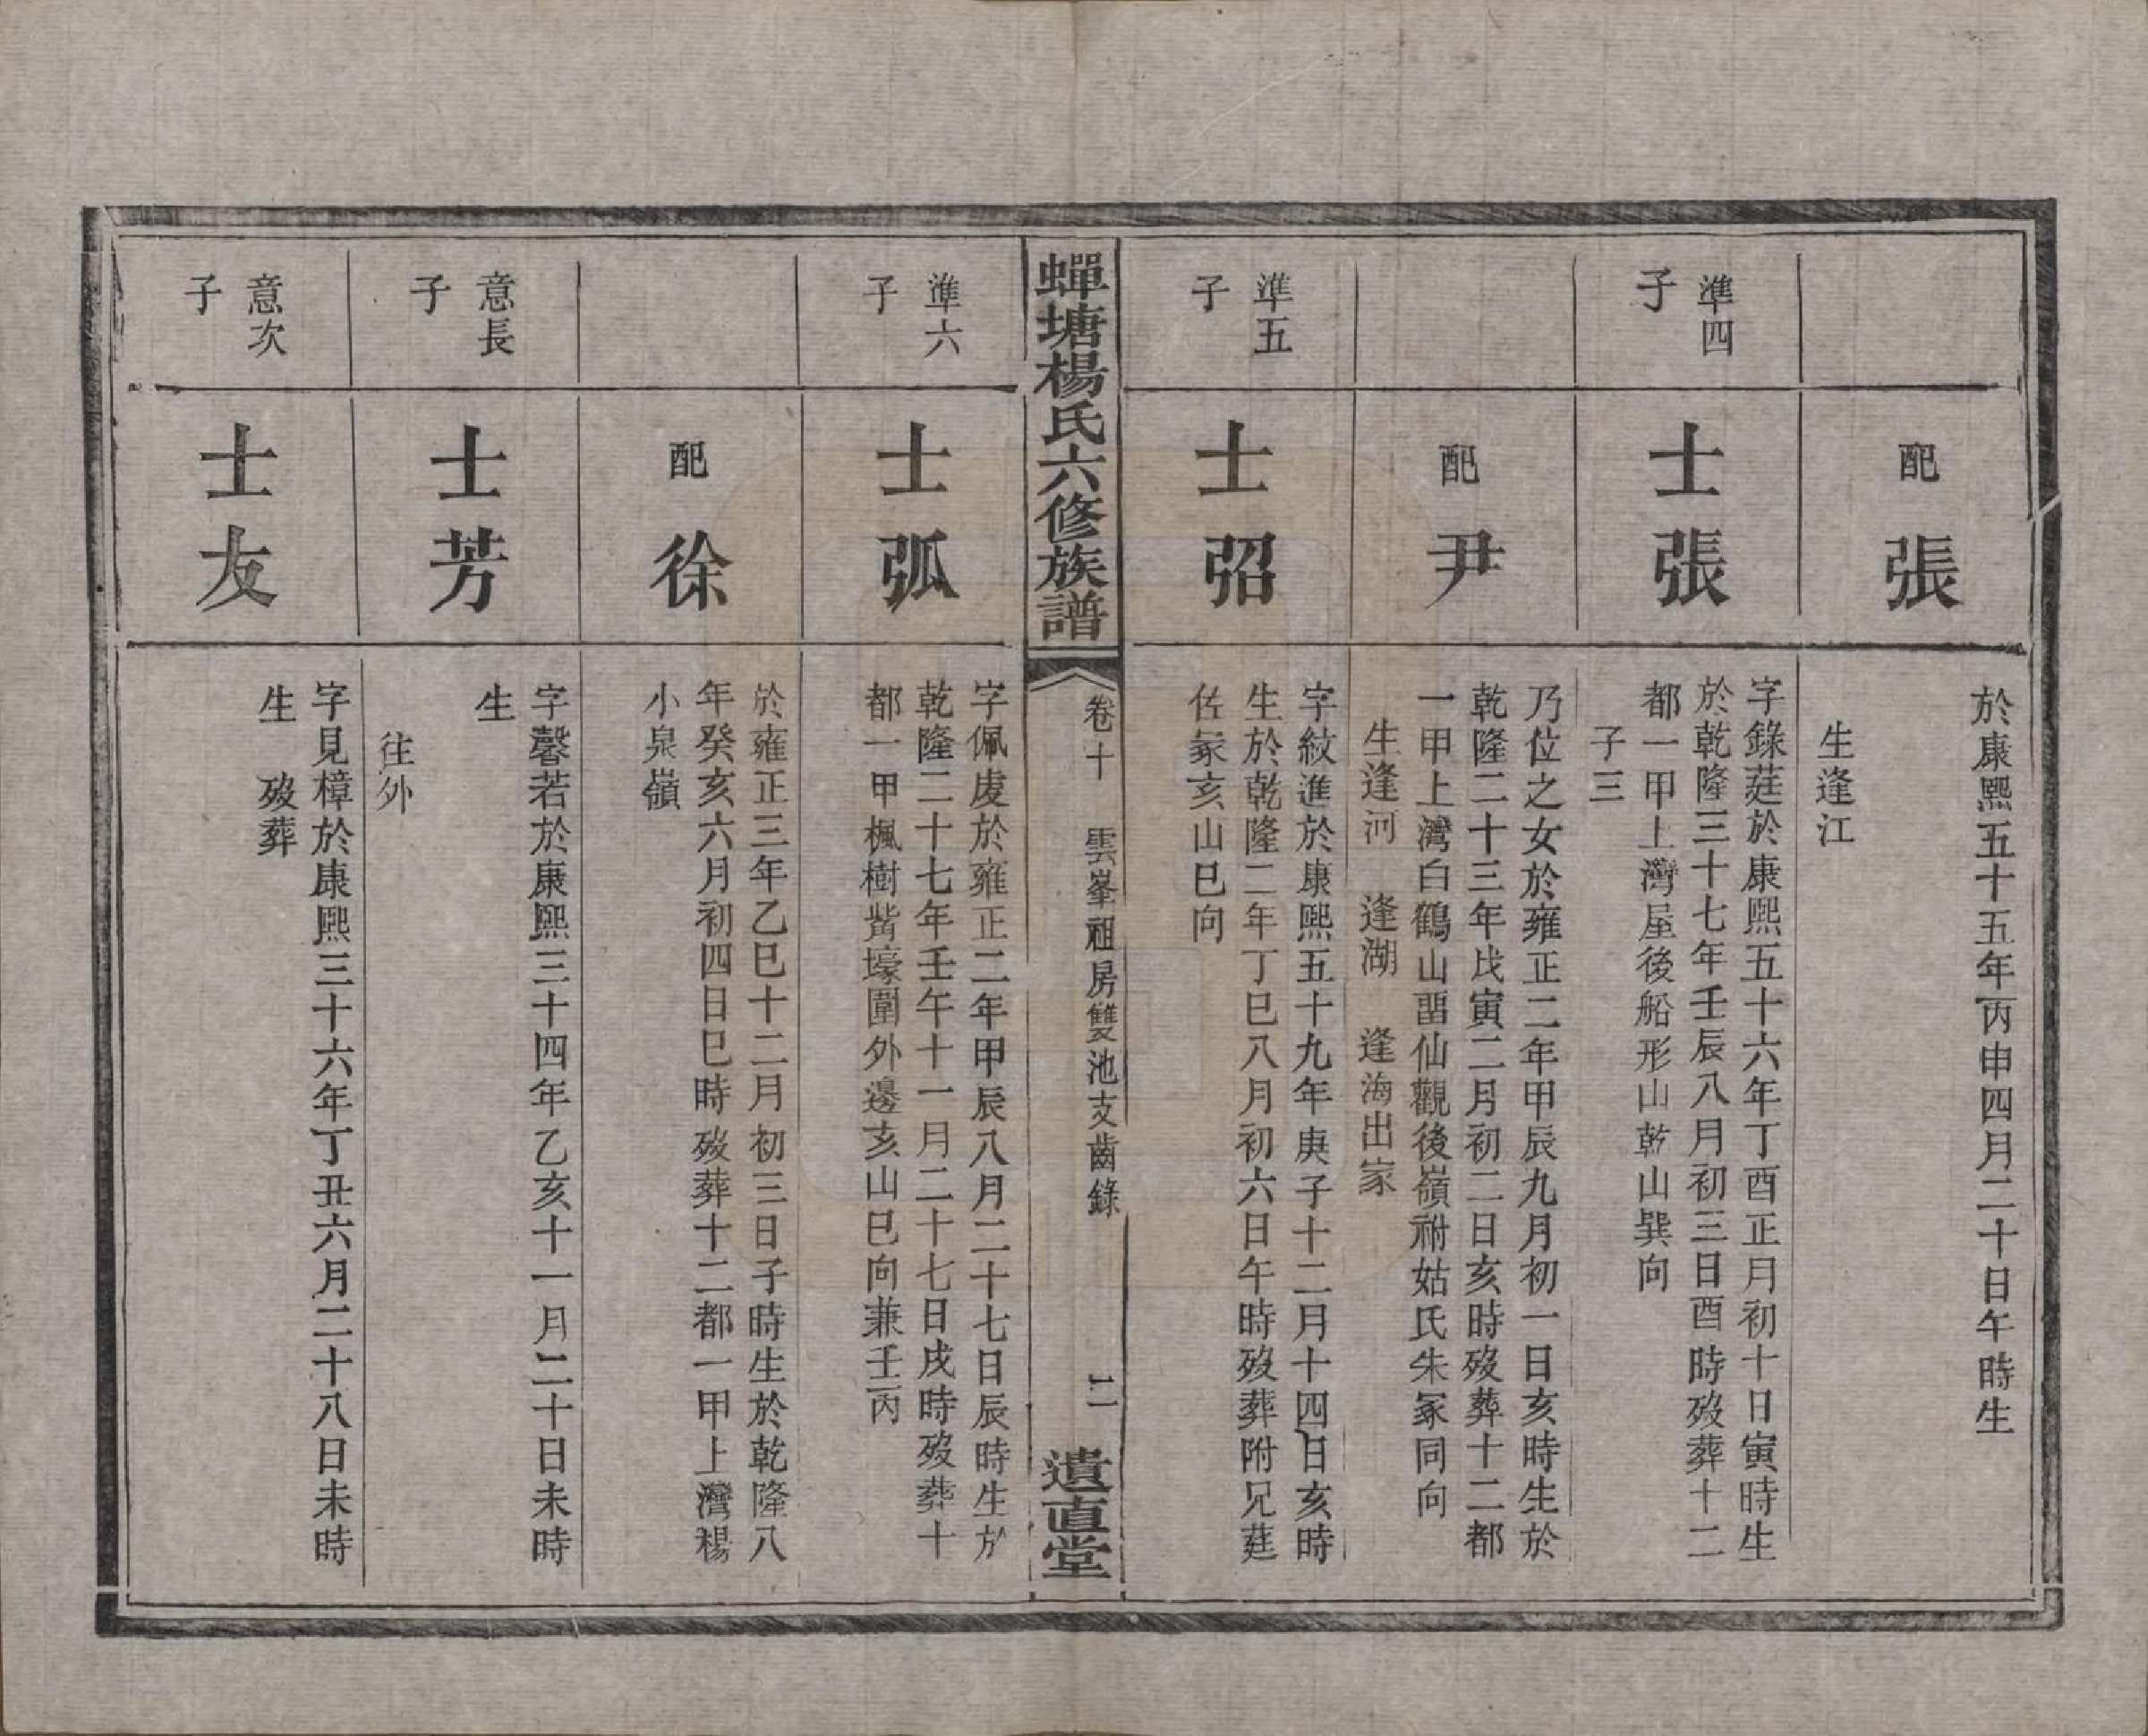 配張
於康熙五十五年丙申四月二十日午時生
生逢江
準四
子
士張
字錄莛於康熙五十六年丁酉正月初十日寅時生
於乾隆三十七年壬辰八月初三日酉時歿葬十二
都一甲上灣屋後船形山乾山巽向
子三
配尹
乃位之女於雍正二年甲辰九月初一日亥時生於
乾隆二十三年戊寅二月初二日亥時歿葬十二都
一甲上灣白鶴山畱仙觀後嶺祔姑氏朱冢同向
生逢河 逢湖 逢海出家
準五
子
士弨
字紋進於康熙五十九年庚子十二月十四日亥時
生於乾隆二年丁巳八月初六日午時歿葬附兄莛
佐冢亥山巳向
蟬塘楊氏六修族譜
卷十 雲峯祖房雙池支齒錄
二
遺直堂
準六
子
士弧
字佩虔於雍正二年甲辰八月二十七日辰時生於
乾隆二十七年壬午十一月二十七日戌時歿葬十
都一甲楓樹觜壕圍外邊亥山巳向兼壬丙
配徐
於雍正三年乙巳十二月初三日子時生於乾隆八
年癸亥六月初四日巳時歿葬十二都一甲上灣楊
小泉嶺
意長
子
士芳
字馨若於康熙三十四年乙亥十一月二十日未時
生
往外
意次
子
士友
字見樟於康熙三十六年丁丑六月二十八日未時
生 歿葬